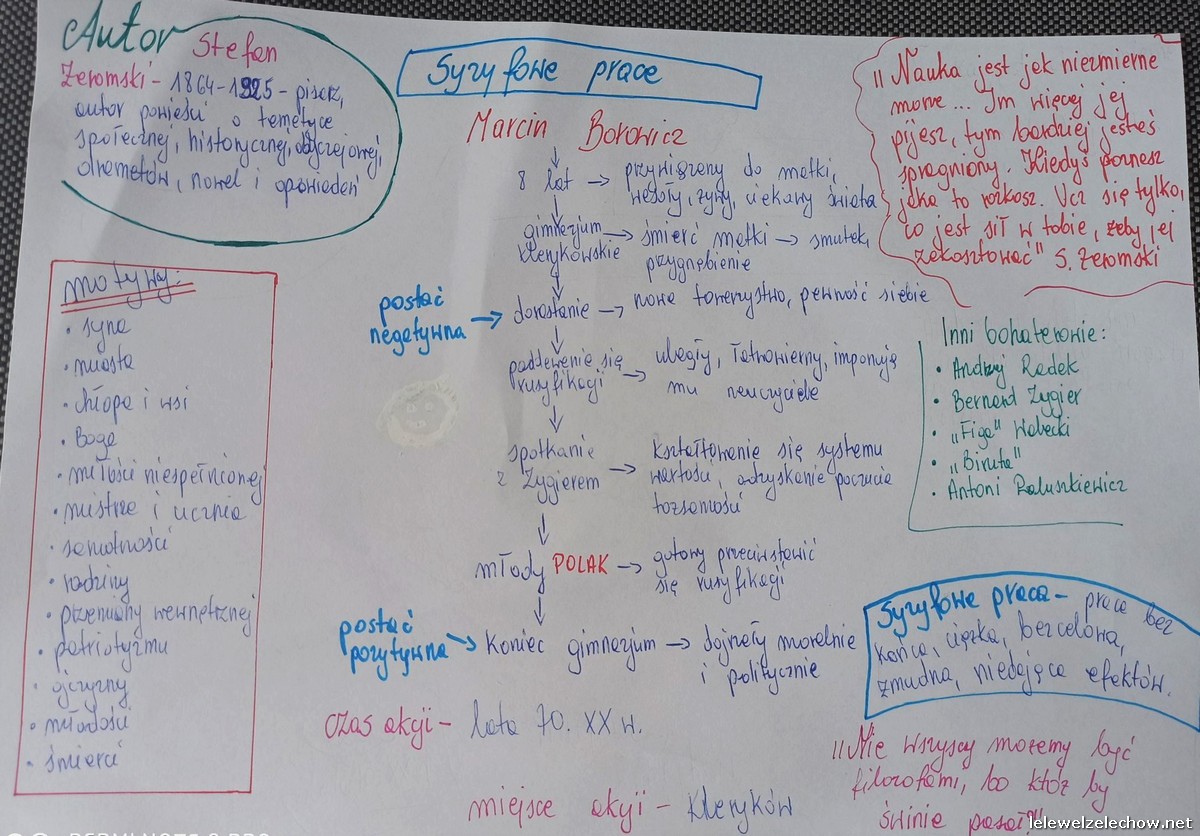 Autor Stefan
Żeromski - 1864-1925 - pisarz,
autor powieści o tematyce
społecznej, historycznej, obyczajowej,
dramatów, nowel i opowiadań
Syzyfowe prace
Marcin Borowicz
8 lat → przywiązany do matki,
wesoły, żywy, ciekawy świata
gimnazjum
klerykowskie → śmierć matki → smutek,
przygnębienie
postać
negatywna → dorastanie → nowe towarzystwo, pewność siebie
poddawanie się
rusyfikacji → uległy, łatwowierny, imponują
mu nauczyciele
spotkanie
z Zygierem → kształtowanie się systemu
wartości, odzyskanie poczucia
tożsamości
młody POLAK → gotowy przeciwstawić
się rusyfikacji
postać
pozytywna → Koniec gimnazjum → dojrzały moralnie
i politycznie
czas akcji - lata 70. XX w.
miejsce akcji - Kleryków
"Nauka jest jak niezmierne
morze... Im więcej jej
pijesz, tym bardziej jesteś
spragniony. Kiedyś poznasz
jaka to rozkosz. Ucz się tylko,
co jest sił w tobie, żeby jej
zakosztować" S. Żeromski
motywy:
• syna
• miasta
• chłopa i wsi
• Boga
• miłości niespełnionej
• mistrza i ucznia
• samotności
• rodziny
• przemiany wewnętrznej
• patriotyzmu
• ojczyzny
• młodości
• śmierci
Inni bohaterowie:
• Andrzej Radek
• Bernard Zygier
• "Figa" Walecki
• "Biruta"
• Antoni Paluszkiewicz
Syzyfowe prace - praca bez
końca, ciężka, bezcelowa,
żmudna, niedająca efektów.
"Nie wszyscy możemy być
filozofami, bo któż by
świnie pasał"
lelewelzelechow.net